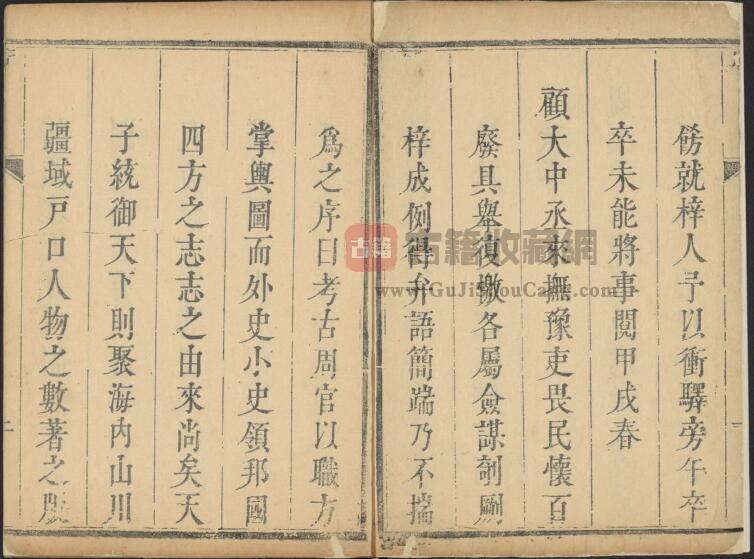 餙就梓人予以衝驛旁午卒
卒未能將事閱甲戌春
顧大中丞來撫豫吏畏民懷百
廢具舉復檄各屬僉謀剞劂
梓成例得弁語簡端乃不揣
爲之序曰考古周官以職方
掌輿圖而外史小史領邦國
四方之志志之由來尚矣天
子統御天下則聚海內山川
疆域戶口人物之數著之版
古籍
古籍收藏網
www.GuJiShouCang.com